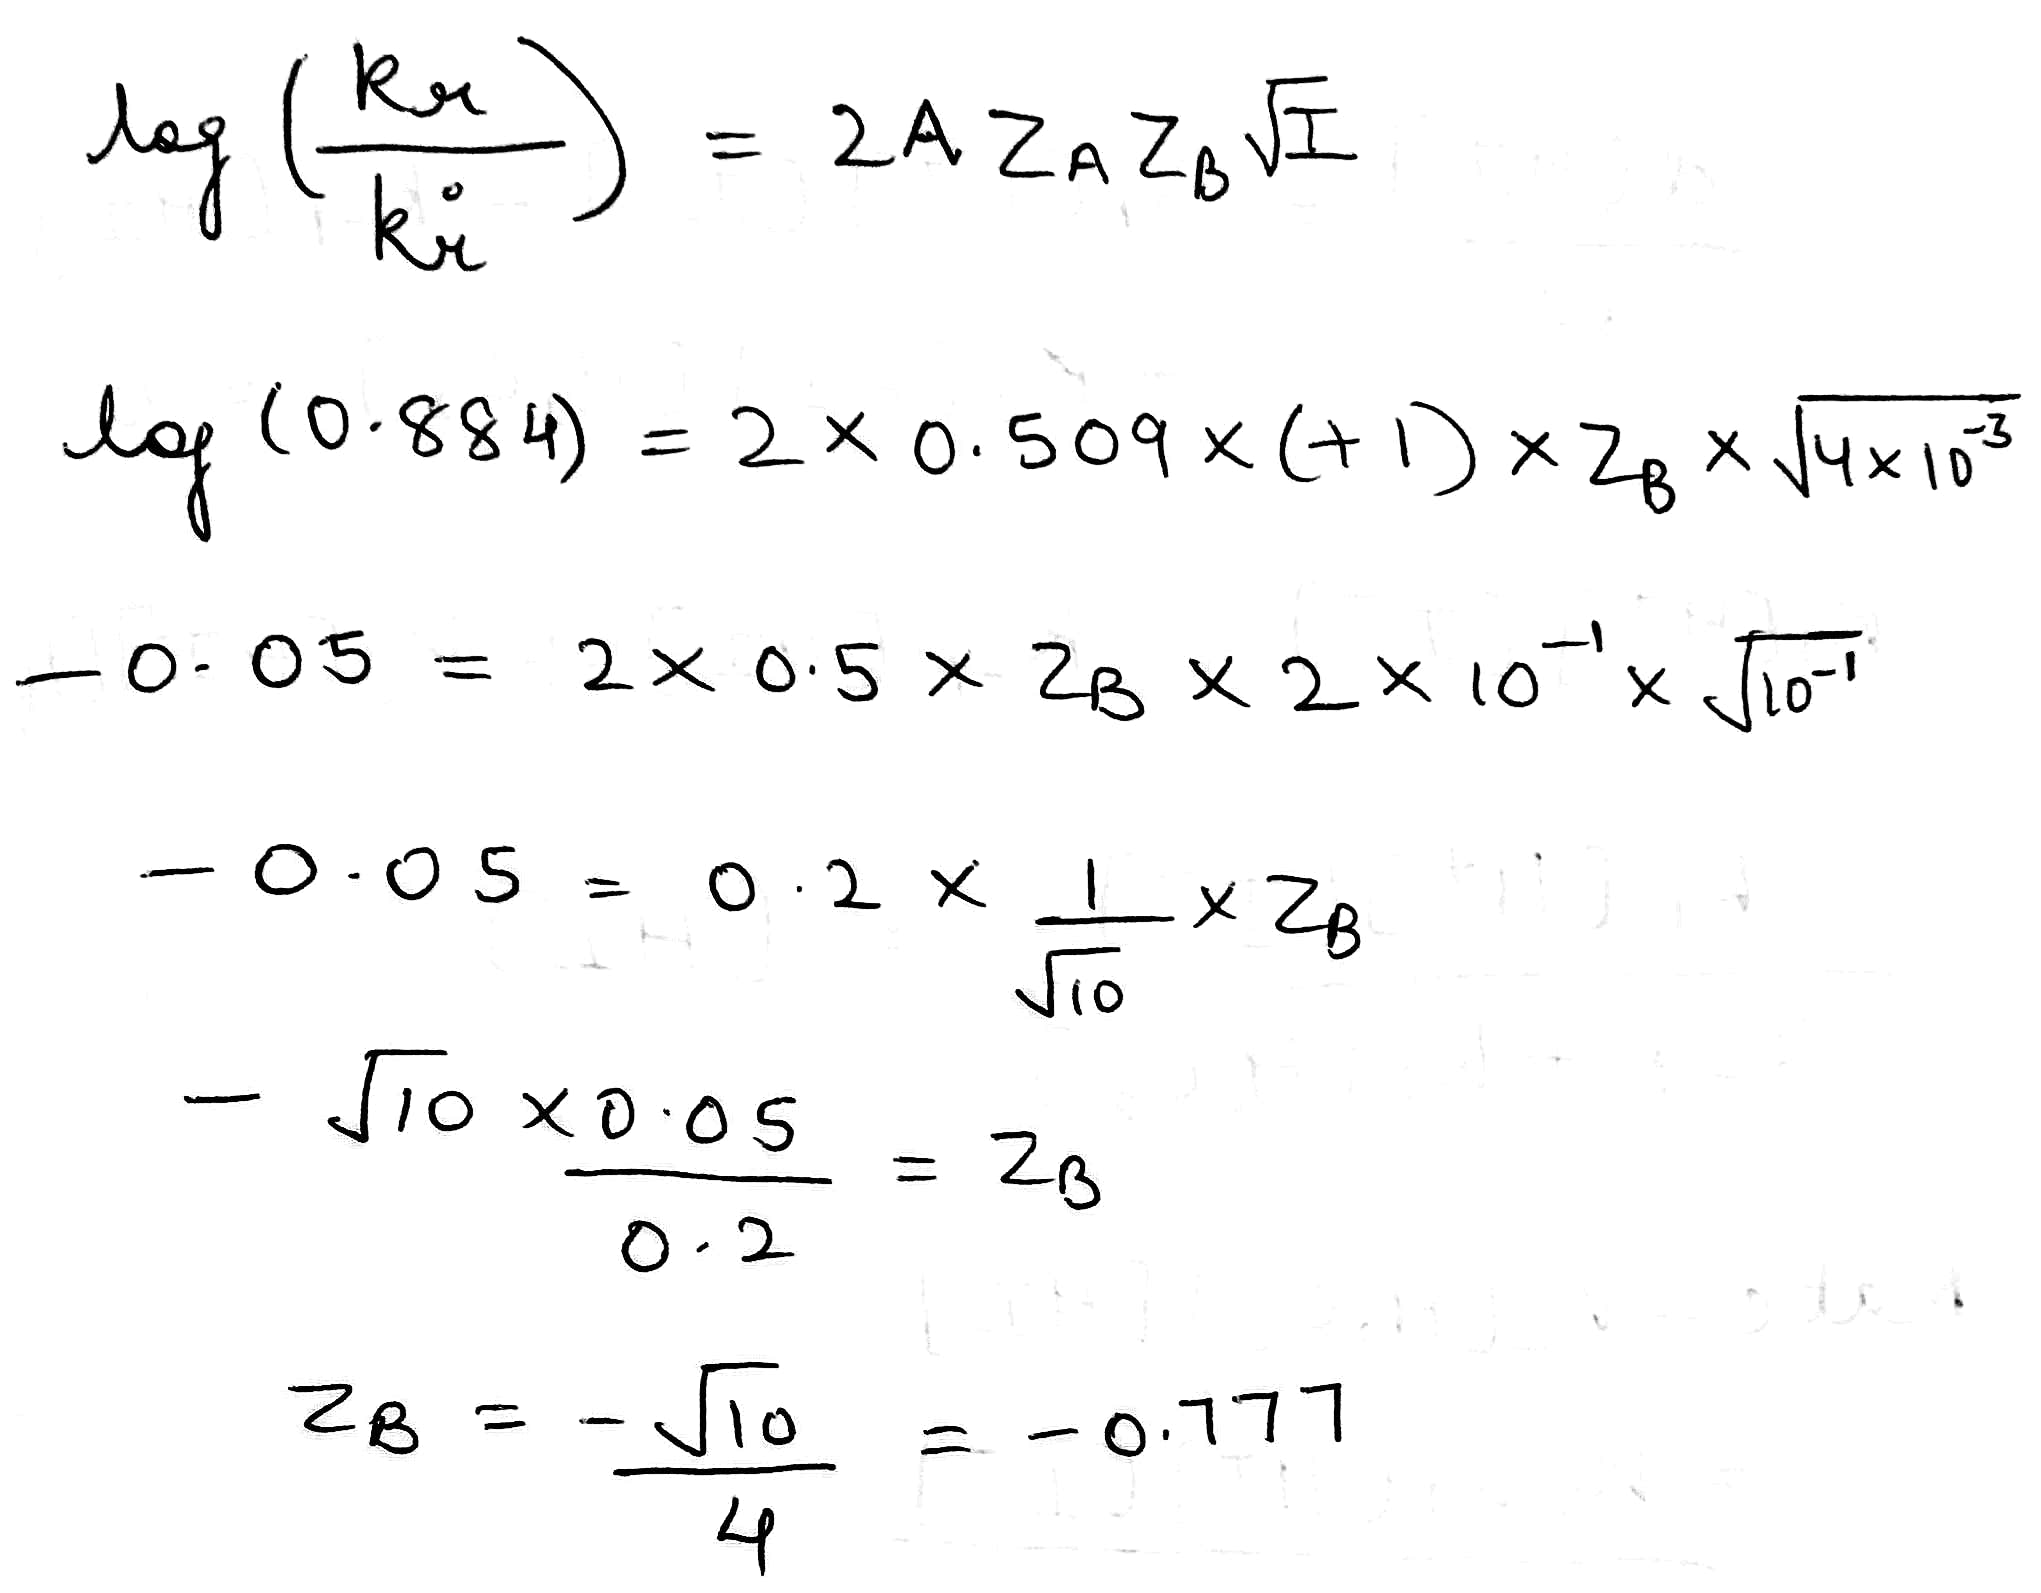 log (kr / kr°) = 2A ZA ZB √I
log (0.884) = 2 × 0.509 × (+1) × ZB × √4×10⁻³
-0.05 = 2 × 0.5 × ZB × 2 × 10⁻¹ × √10⁻¹
-0.05 = 0.2 × 1/√10 × ZB
- √10 × 0.05 / 0.2 = ZB
ZB = -√10 / 4 = -0.777